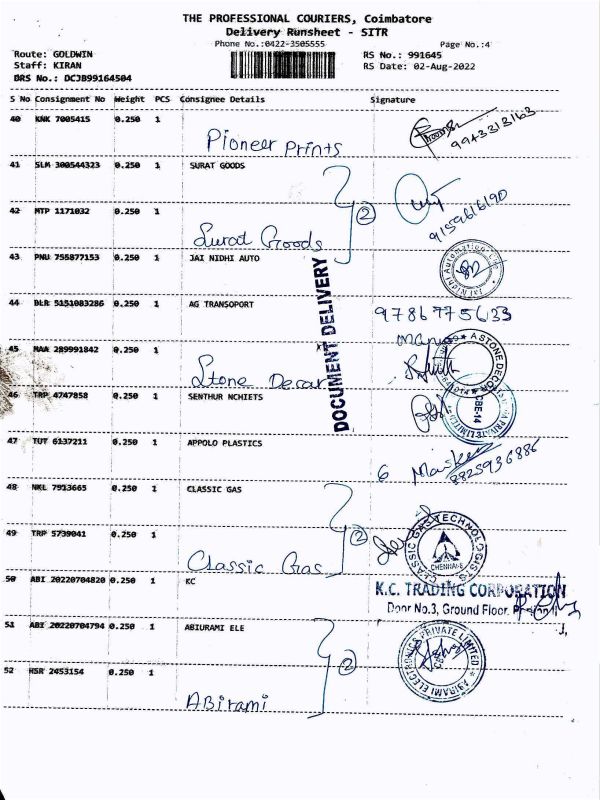 THE PROFESSIONAL COURIERS, Coimbatore
Delivery Runsheet - SITR
Phone No.:0422-3505555 Page No.:4
Route: GOLDWIN RS No.: 991645
Staff: KIRAN RS Date: 02-Aug-2022
DRS No.: DCJB99164504
S No Consignment No Weight PCS Consignee Details Signature
40 KNK 7005415 0.250 1
Pioneer Prints 9943313163
41 SLM 300544323 0.250 1 SURAT GOODS
42 MTP 1171032 0.250 1 2
Surat Goods 9159616190
43 PNU 755877153 0.250 1 JAI NIDHI AUTO
44 BLR 5151083286 0.250 1 AG TRANSOPORT 9786775633
DOCUMENT DELIVERY
45 MAA 289991842 0.250 1
Stone Decar
ASTONE DECOR
46 TRP 4747858 0.250 1 SENTHUR NCHIETS
PRIVATE LIMITED
CBE-14
47 TUT 6137211 0.250 1 APPOLO PLASTICS
8825936886
48 NKL 7913665 0.250 1 CLASSIC GAS
49 TRP 5739041 0.250 1 2
Classic Gas
CLASSIC GAS TECHNOLOGISTS
CHENNAI
50 ABI 20220704820 0.250 1 KC K.C. TRADING CORPORATION
Door No.3, Ground Floor,
51 ABI 20220704794 0.250 1 ABIURAMI ELE
52 HSR 2453154 0.250 1 2
ABirami
ABIRAMI ELECTRONICS PRIVATE LIMITED